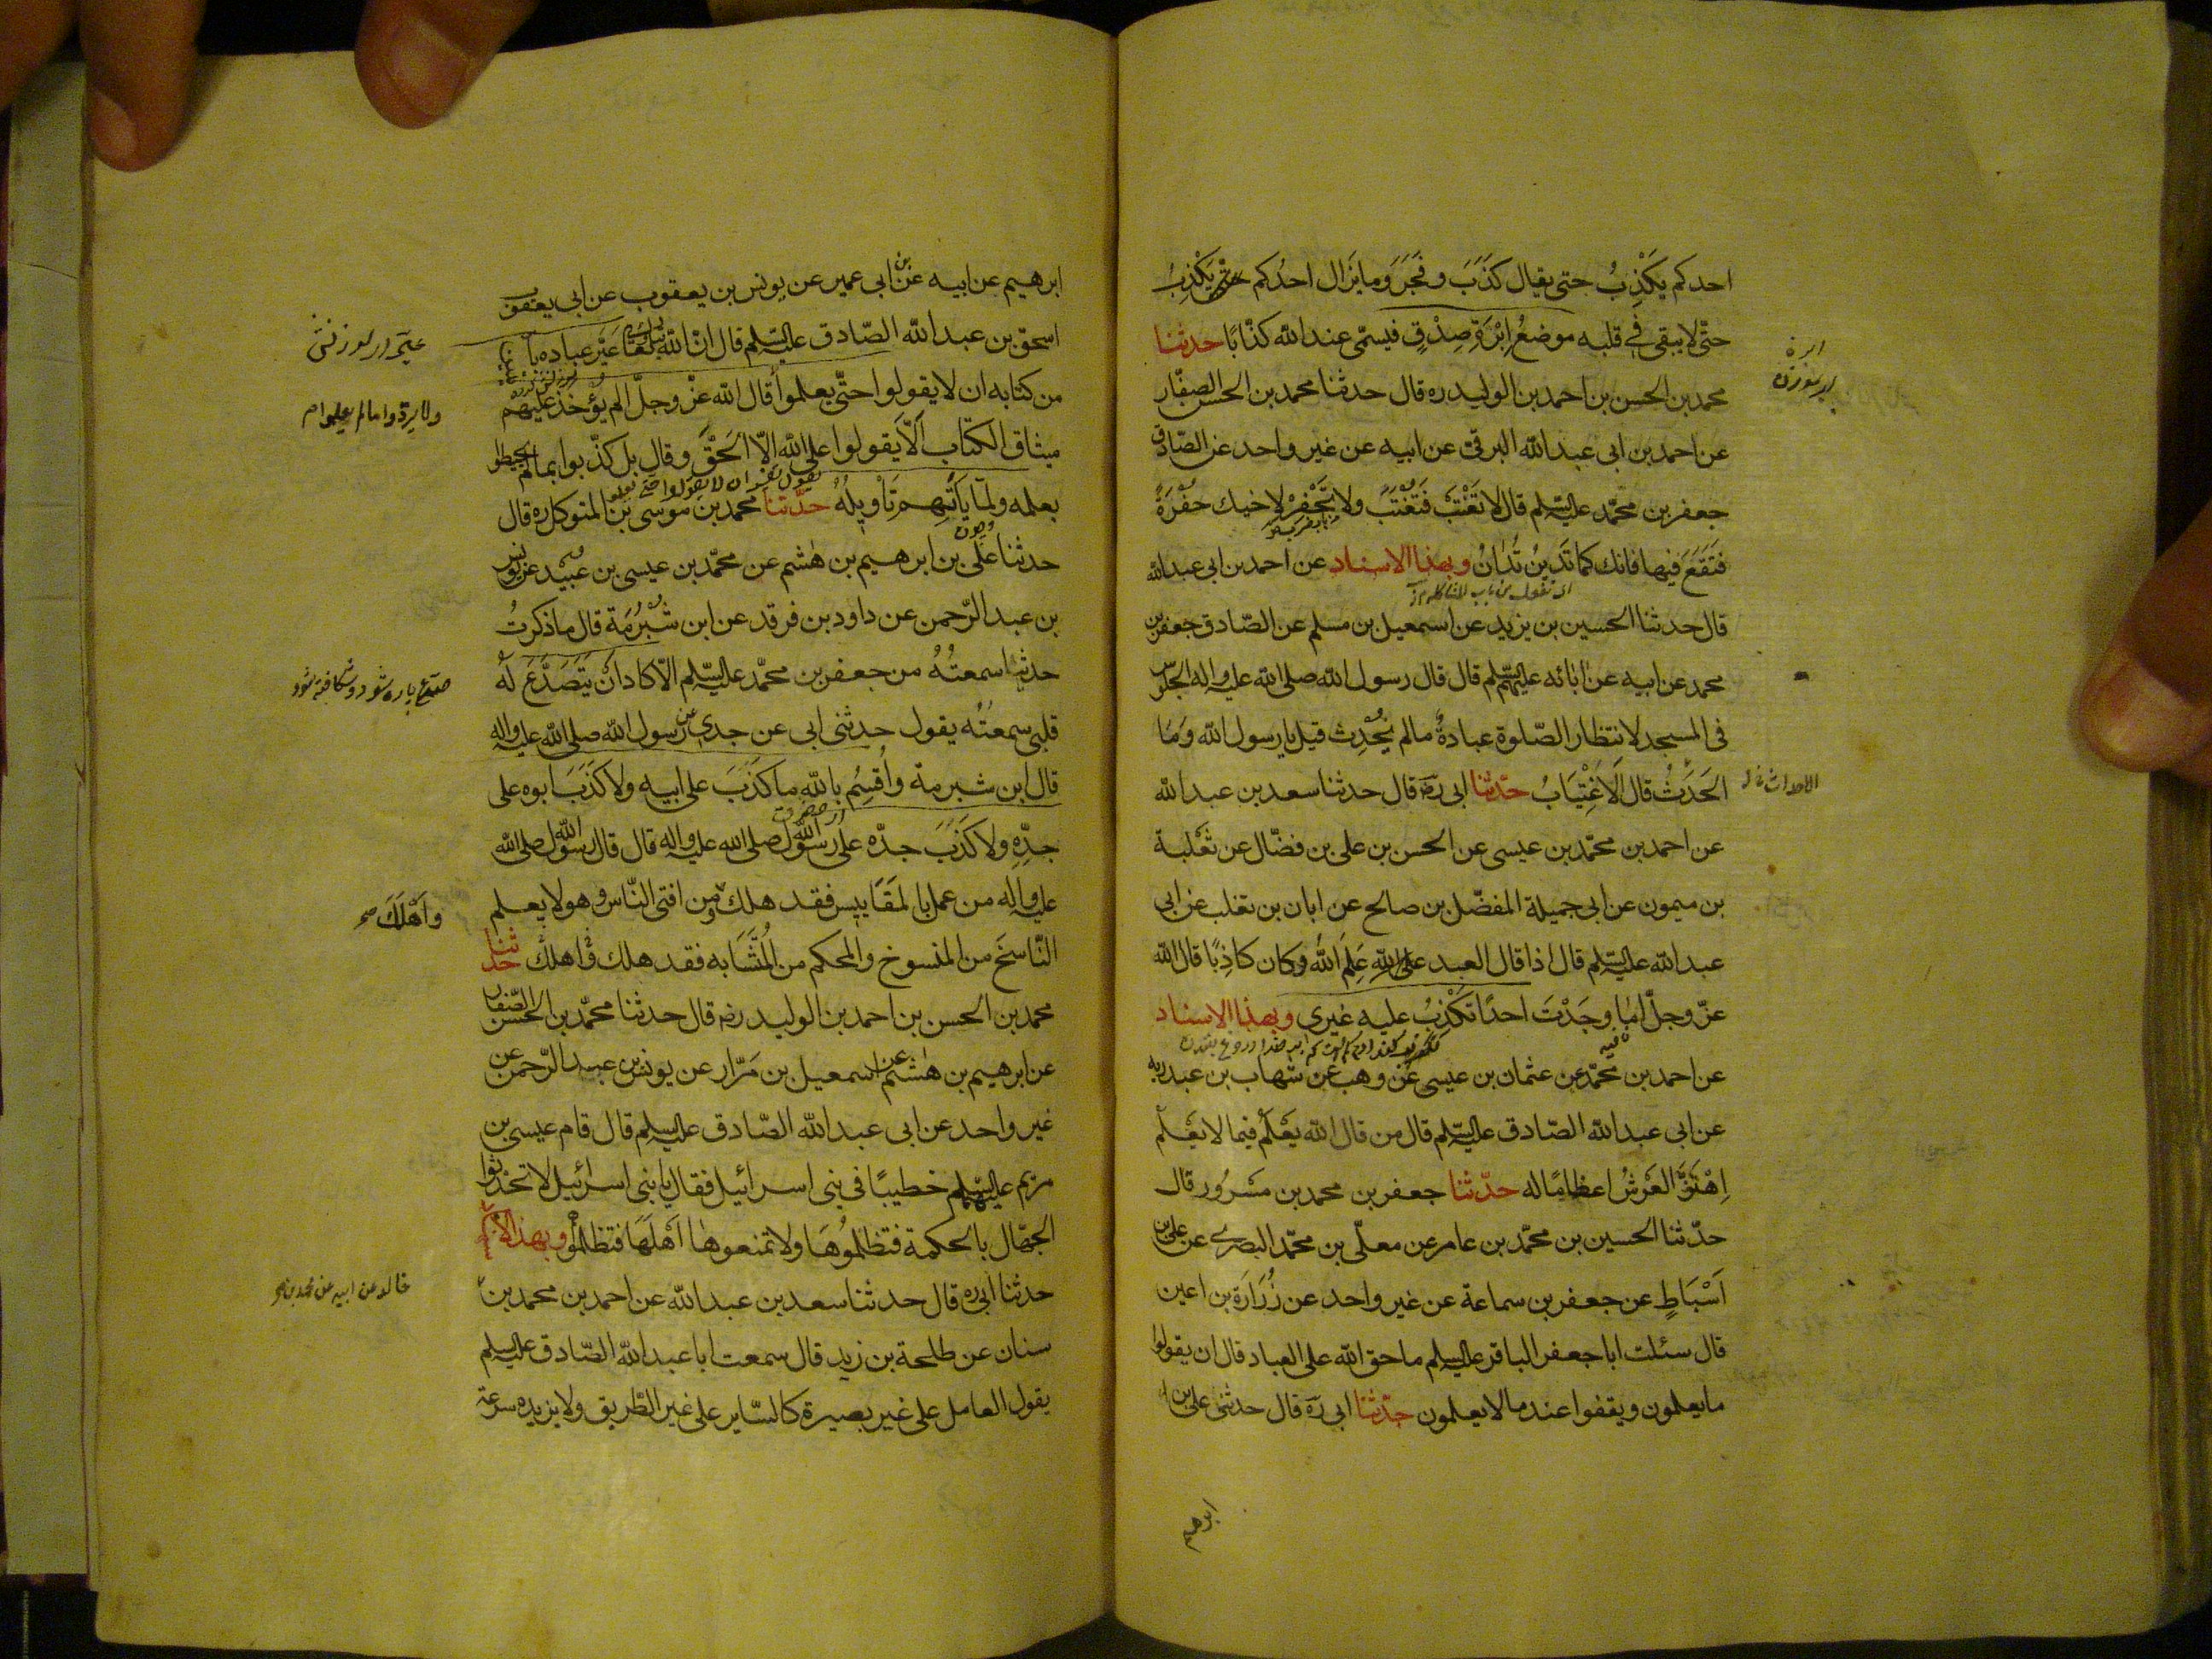 احدكم يَكْذِبُ حتى يقال كَذَبَ وفَجَرَ وما يزال احدُكم حتى يَكْذِبُ
حتّى لا يبقى في قلبه موضعُ اِبْرَةِ صِدْقٍ فيسمّى عند الله كذّابًا حدثنا
محمد بن الحسن بن احمد بن الوليد ره قال حدثنا محمد بن الحسن الصفّار
عن احمد بن ابى عبد الله البرقى عن ابيه عن غير واحد عن الصّادق
جعفر بن محمّد عليه السّلم قال لا تَغْتَبْ فَتُغْتَبْ ولا تَحْفِرْ لاخيك حفْرَةً
فتَقَعَ فيها فانك كما تَدِينُ تُدَانُ وبهذا الاسناد عن احمد بن ابى عبد الله
قال حدثنا الحسين بن يزيد عن اسمعيل بن مسلم عن الصّادق جعفر بن
محمد عن ابيه عن ابائه عليهم السّلم قال قال رسول الله صلى الله عليه واله الجلوس
فى المسجد لانتظار الصّلوة عبادةٌ مالم يُحْدِث قيل يا رسول الله وَمَا
الحَدَثُ قال الاغْتِيَابُ حدّثنا ابى ره قال حدثنا سعد بن عبد الله
عن احمد بن محمّد بن عيسى عن الحسن بن على بن فضّال عن ثَعْلبة
بن ميمون عن ابى جميلة المفضّل بن صالح عن ابان بن تغلب عن ابى
عبد الله عليه السّلم قال اذا قال العبد عَلِمَ اللهُ وكان كاذِبًا قال الله
عزّ وجلّ اما وجَدْتَ احدًا تكْذِبُ عليه غيرى وبهذا الاسناد
عن احمد بن محمّد عن عثمان بن عيسى عن وهب عن شهاب بن عبد ربه
عن ابى عبد الله الصّادق عليه السّلم قال من قال الله يَعْلَمُ فيما لا يَعْلم
اِهْتَزَّ العَرْشُ اعظامًا له حدّثنا جعفر بن محمد بن مَسْرُور قال
حدّثنا الحسين بن محمّد بن عامر عن معلّى بن محمّد البصرى عن على بن
اَسْبَاطٍ عن جعفر بن سماعة عن غير واحد عن زُرَارَة بن اعين
قال سئلت ابا جعفر الباقر عليه السلم ما حق الله على العباد قال ان يقولوا
ما يعلمون ويقفوا عند ما لا يعلمون حدّثنا ابى ره قال حدثنى على بن
ابرهيم
ابرهيم عن ابيه عن ابن ابى عمير عن يونس بن يعقوب عن ابى يعقوب
اسحق بن عبد الله الصّادق عليه السّلم قال انّ الله عَيَّر عباده
من كتابه ان لا يقولوا حتّى يعلموا قال الله عزّ وجلّ الم يُؤخَذْ عليهم
ميثاق الكتاب اَلَّا يقولوا على الله الّا الحَقَّ وقال بل كذّبوا بما لم يحيطوا
بعلمه ولمّا يَاْتِهِم تَاْويلُهُ حدّثنا محمد بن موسى بن المتوكل ره قال
حدثنا على بن ابرهيم بن هٰشم عن محمّد بن عيسى بن عُبَيْد عن يونس
بن عبد الرّحمن عن داود بن فرقد عن ابن شُبْرُمَة قال ما ذكرتُ
حديثا سمعتُهُ من جعفر بن محمّد عليه السّلم الّا كاد ان يَتَصَدَّعَ لَهُ
قلبى سمعتُه يقول حدثنى ابى عن جدى عن رسول الله صلى الله عليه واله
قال ابن شبرمة واُقسِمُ بالله ما كَذَبَ على ابيه ولا كَذَبَ ابوه على
جدِّهِ ولا كَذَبَ جدّه على رسول الله صلى الله عليه واله قال قال رسول الله صلى الله
عليه واله من عمل بالمقَاييس فقد هلك ومن افتى النّاس وهو لا يعلم
النّاسخَ من المنسوخ والمحكم من المُتشَابه فقد هلك واهلك حدثنا
محمد بن الحسن بن احمد بن الوليد ره قال حدثنا محمّد بن الحسن الصّفار
عن ابرهيم بن هٰشم عن اسمعيل بن مَرّار عن يونس بن عبد الرّحمن عن
غير واحد عن ابى عبد الله الصّادق عليه السلم قال قام عيسى بن
مريم عليه السّلم خطيبًا فى بنى اسرائيل فقال يا بنى اسرائيل لا تحدّثوا
الجهّال بالحكمة فتظلمُوهَا ولا تمنعوها اَهْلَهَا فتظلموهم وبهذا
حدثنا ابى ره قال حدثنا سعد بن عبد الله عن احمد بن محمد بن
سنان عن طلحة بن زيد قال سمعت ابا عبد الله الصّادق عليه السلم
يقول العامل على غير بصيرة كالسّاير على غير الطّريق ولا يزيده سرعة
ولا يردوا مالم يعلموا
واَهْلَكَ صح
خالد عن ابيه عن محمد بن صح